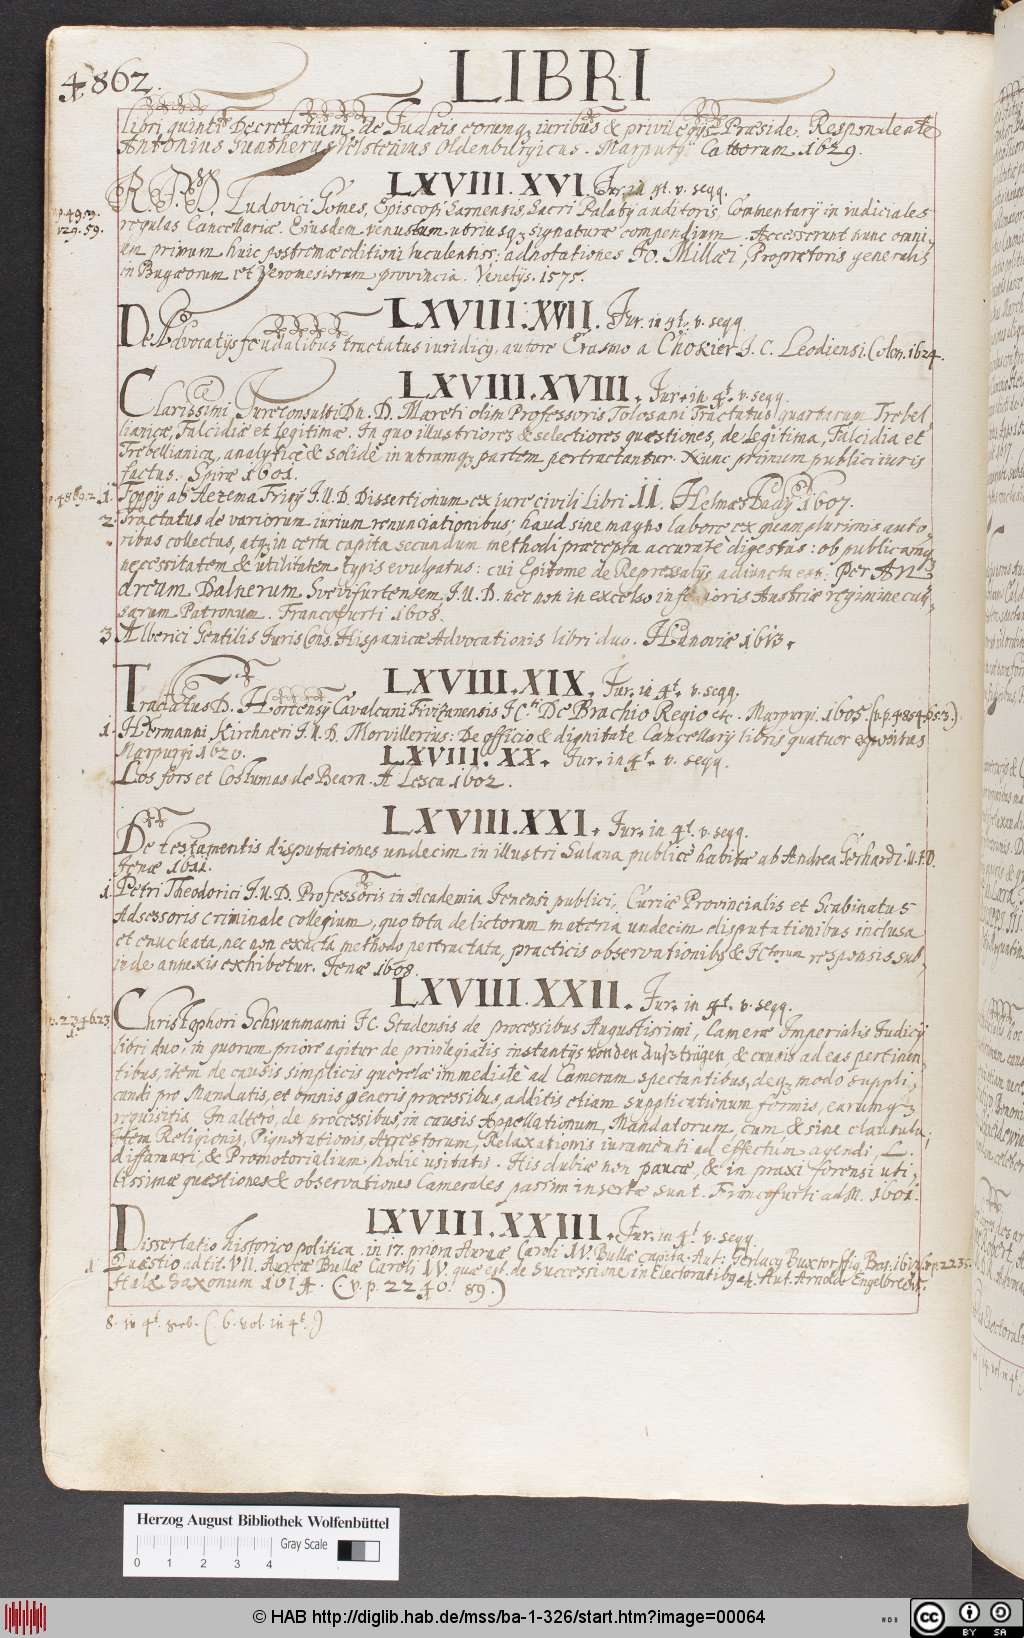 4862.
LIBRI
libri quinti Decretalium de Judæis eorumq; iuribus & privilegijs Præside. Respondente
Antonius Guntherus Oldenburgicus. Marpurgi Cattorum 1629.
LXVIII. XVI. Jur. in 4t. v. seqq.
p. 4959.
R. P. D. Ludovici Gomes, Episcopi Sarnensis, Sacri Palatij auditoris, Commentarij in iudiciales
regulas Cancellariæ. Eiusdem venustum utriusq; signaturæ compendium. Accesserunt nunc omni,
um primum huic postremæ editioni luculentiss: adnotationes Jo. Millæi, Proprætoris generalis
in Bugæorum et provincia. Venetijs. 1575.
LXVIII. XVII. Jur. in 4t. v. seqq.
De Advocatijs feudalibus tractatus iuridicq, autore Erasmo a Chokier J. C. Leodiensi. Colon. 1624.
LXVIII. XVIII. Jur. in 4t. v. seqq.
Clarissimi Jureconsulti Dn. D. Mareti olim Professoris Tolosani Tractatus quartarum Trebel,
lianicæ, Falcidiæ et legitimæ. In quo illustriores & selectiores quæstiones, de Legitima, Falcidia et
Trebellianica, analyticè & solidè in utramq; partem pertractantur. Nunc primum publici iuris
factus. Spiræ 1601.
1. Foppij ab Aezema Frisij J. U. D. Dissertionum ex iure civili Libri II. Helmestadij 1607.
2. Tractatus de variorum iurium renunciationibus: haud sine magno labore ex quamplurimis auto,
ribus collectus, atq; in certa capita secundum methodi præcepta accuratè digestus: ob publicamq;
necessitatem & utilitatem typis evulgatus: cui Epitome de Repressalijs adiuncta est. Per An,
dream Dalnerum Svevifurtensem J. U. D. nec non in excelso inferioris Austriæ regimine cau,
sarum Patronum. Francofurti 1608.
3 Alberici Gentilis Juris Cons. Hispanicæ Advocationis libri duo. Hanoviæ 1613.
LXVIII. XIX. Jur. in 4t. v. seqq.
Tractatus D. Hortensij Cavalcani Fivizanensis JCti De Brachio Regio etc. Marpurgi. 1605.
1. Hermanni Kirchneri J. U. D. Morvillerius: De officio & dignitate Cancellarij libris quatuor expositus
Marpurgi 1620.
LXVIII. XX. Jur. in 4t. v. seqq.
Los fors et Costumas de Bearn. A Lesca 1602.
LXVIII. XXI. Jur. in 4t. v. seqq.
De testamentis disputationes undecim in illustri Salana publicè habitæ ab Andrea Gerhardi U. J. D.
Jenæ 1611.
1. Petri Theodorici J. U. D. Professoris in Academia Jenensi publici, Curiæ Provincialis et Scabinatus
Adsessoris criminale collegium, quo tota delictorum materia undecim disputationibus inclusa
et enucleata, nec non exacta methodo pertractata, practicis observationibq & JCtorum responsis sub,
inde annexis exhibetur. Jenæ 1608.
LXVIII. XXII. Jur. in 4t. v. seqq.
Christophori Schwanmanni JC. Studensis de processibus Augustissimi, Cameræ Imperialis Judicij
libri duo: in quorum priore agitur de privilegiatis instantijs von den Austrägen & causis ad eas pertinen,
tibus, item de causis simplicis querelæ immediatè ad Cameram spectantibus, deq; modo suppli,
candi pro Mandatis, et omnis generis processibus, additis etiam supplicationum formis, earumq;
requisitis. In altero, de processibus, in causis Appellationum, Mandatorum, cum & sine clausula,
item Religionis, Pignorationis, Arrestorum, Relaxationis iuramenti ad effectum agendi, L.
diffamari, & Promotorialium hodiè usitatis. His dubiæ non paucæ, & in praxi forensi uti,
lissimæ quæstiones & observationes Camerales passim insertæ sunt. Francofurti ad M. 1601.
LXVIII. XXIII. Jur. in 4t. v. seqq.
Dissertatio historico politica in 17. priora Aureæ Caroli IV. Bullæ capita. Aut: Gerlacy Buxtorffig.
1. Quæstio ad tit. VII. Aureæ Bullæ Caroli IV. quæ est de Successione in Electoratibq. Aut. Arnoldo Engelbrecht.
Halæ Saxonum 1614. (v. p. 2240. 89.)
8. in 4t. (6. vol. in 4t.)
Herzog August Bibliothek Wolfenbüttel
Gray Scale
0 1 2 3 4
© HAB http://diglib.hab.de/mss/ba-1-326/start.htm?image=00064
WDB
cc BY SA